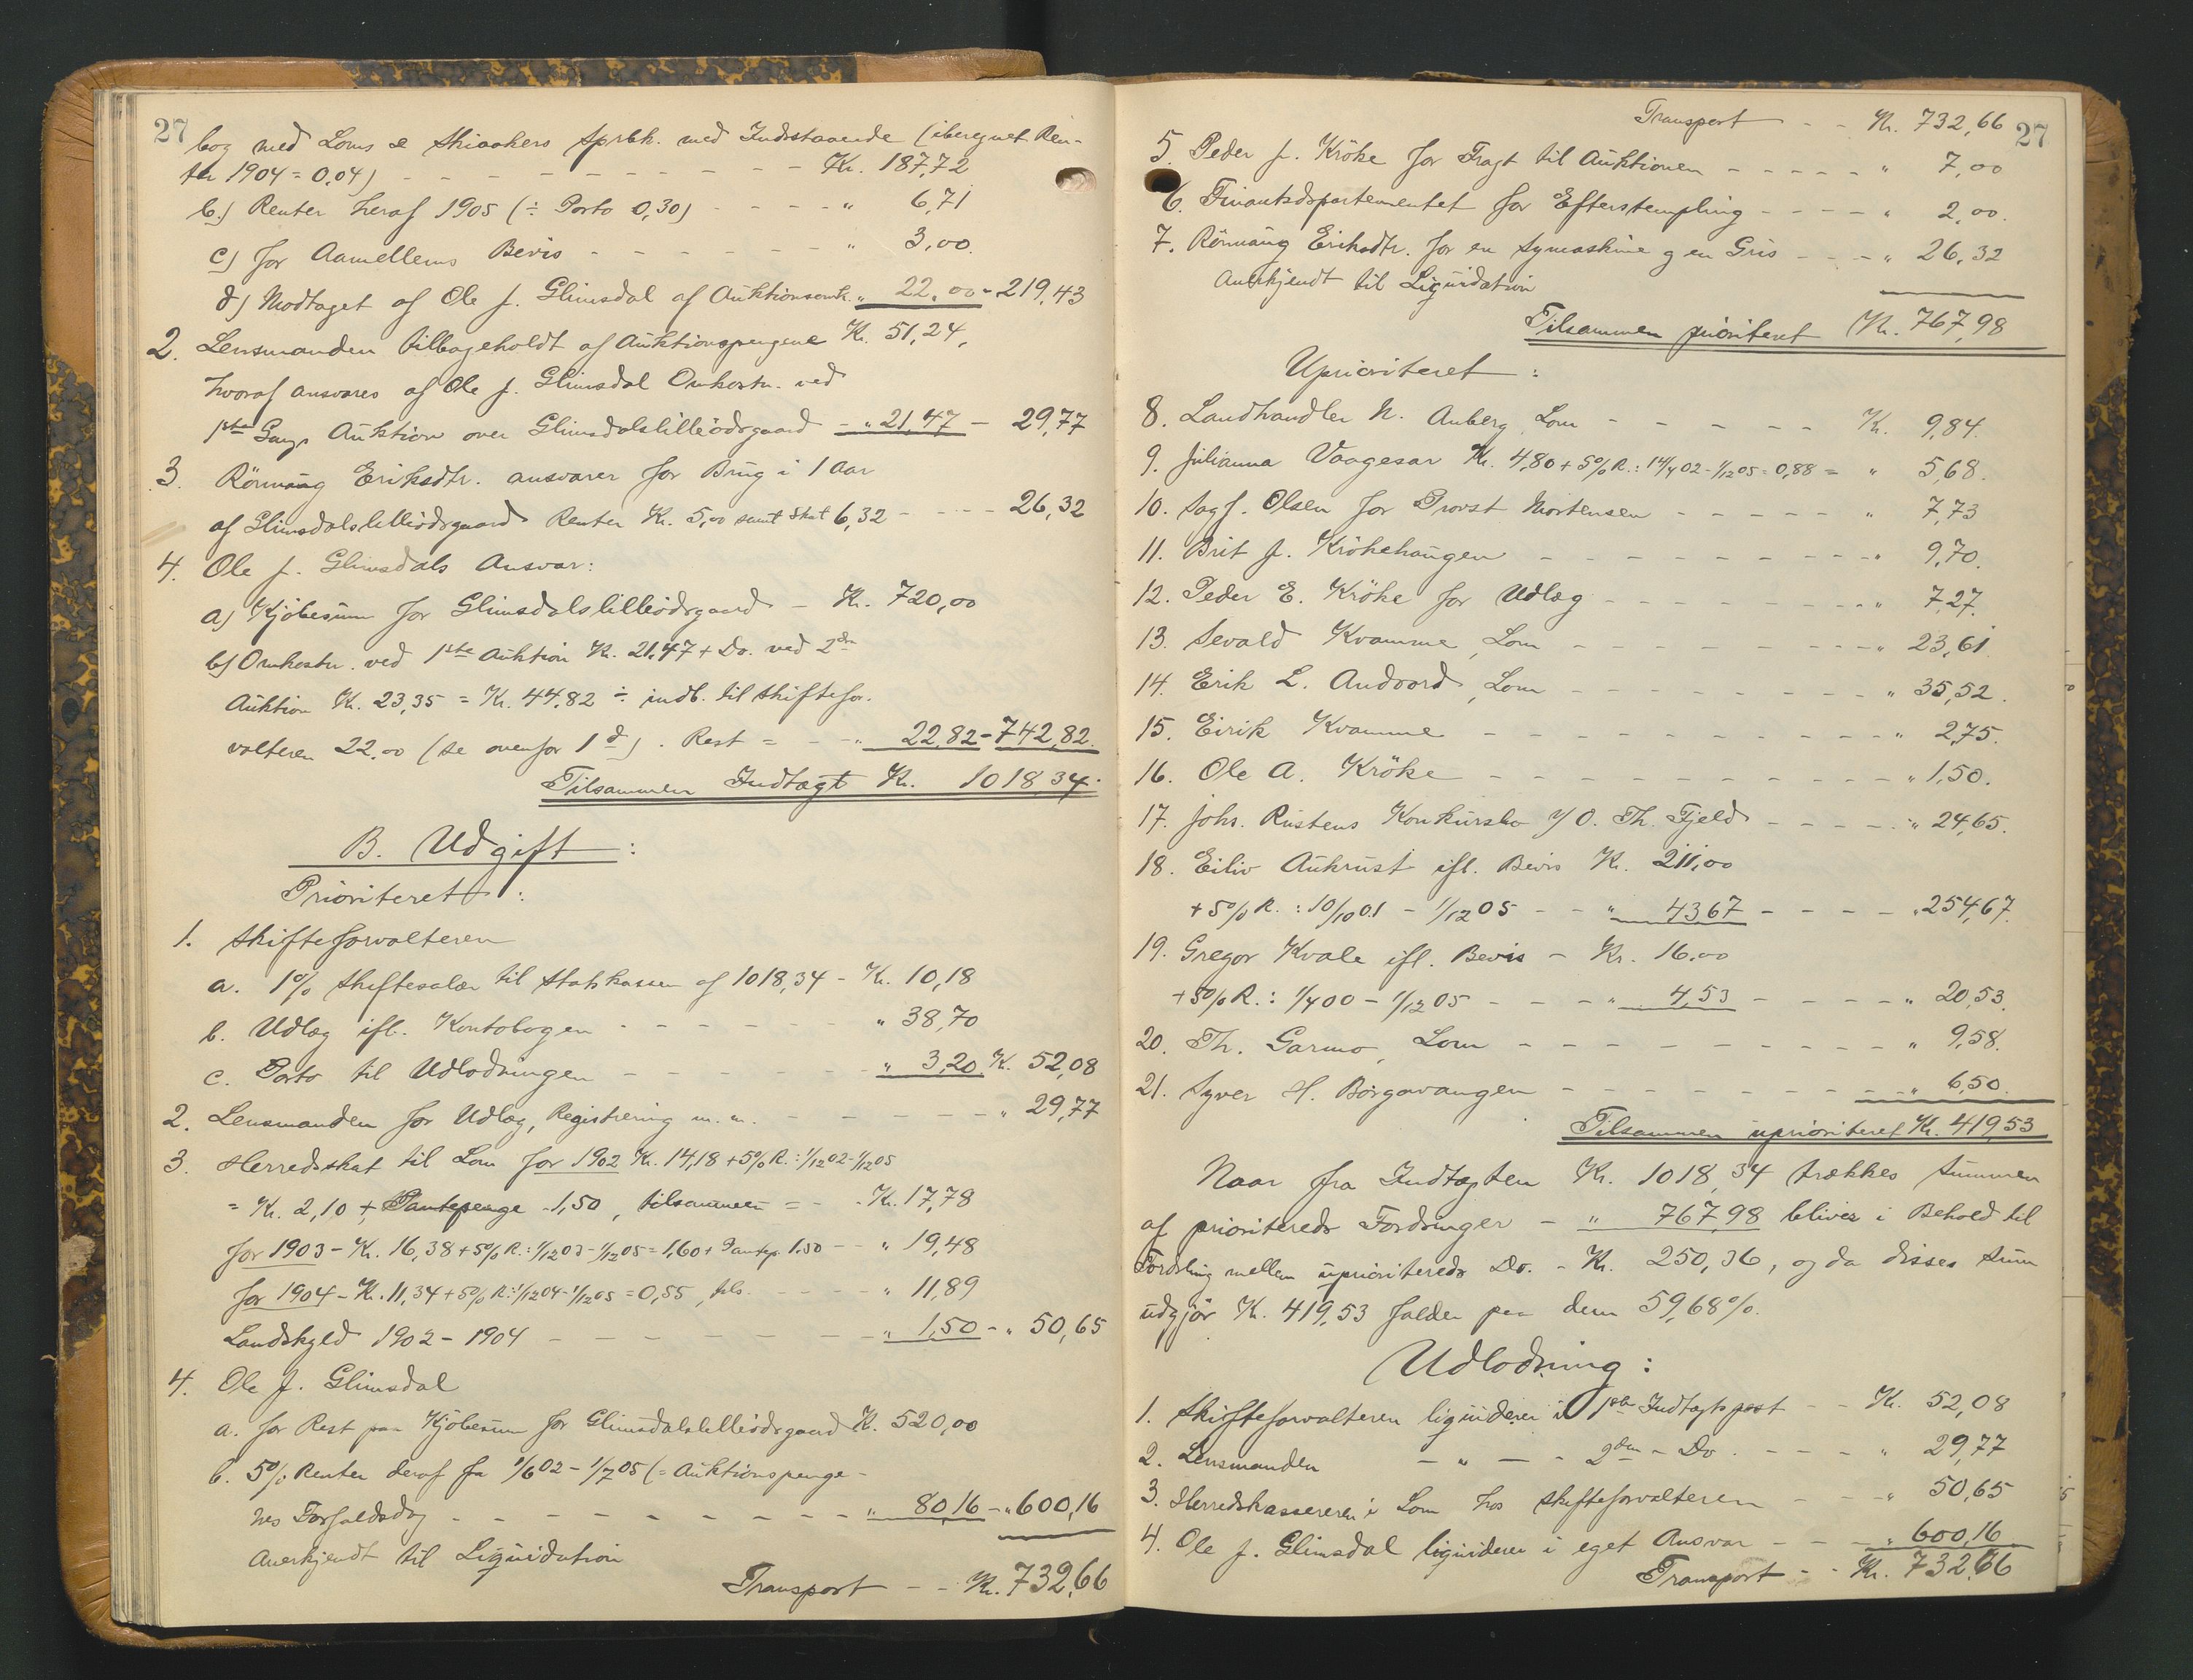 27
bog med Loms & Skiaakers Sprbk. med Indstaaende (iberegnet Ren-
ter 1904 = 0,04) - - - - - - - - - Kr. 187,72
b.) Renter heraf 1905 (÷ Porto 0,30) - - - - " 6,71
c) for Aamellems Bevis - - - - - - " 3,00.
d) Modtaget af Ole J. Glimsdal af Auktionsomk. " 22,00 - 219,43
2. Lensmanden tilbageholdt af Auktionspengene Kr. 51,24,
hvoraf ansvares af Ole J. Glimsdal Omkostn. ved
1ste Gangs Auktion over Glimsdalslilleödegaard - " 21,47 - 29,77
3. Rönnaug Eriksdtr. ansvarer for Brug i 1 Aar
af Glimsdalslilleödegaard Renter Kr. 5,00 samt Skat 6,32 - - - - 26,32
4. Ole J. Glimsdals Ansvar:
a) Kjöbesum for Glimsdalslilleödegaard - Kr. 720,00
b) Omkostn. ved 1ste Auktion Kr. 21,47 + Do. ved 2den
Auktion Kr. 23,35 = Kr. 44,82 ÷ indb. til Skiftefor-
valteren 22,00 (se ovenfor 1 d). Rest = - - " 22,82 - 742,82.
Tilsammen Indtægt Kr. 1018,34.
B. Udgift:
Prioriteret:
1. Skifteforvalteren
a. 1% Skiftesalær til Statskassen af 1018,34 - Kr. 10,18
b. Udlæg ifl. Kontobogen - - - - - - - " 38,70
c. Porto til Udlodningen - - - - - - - " 3,20 K. 52,08
2. Lensmanden for Udlæg, Registrering m. m. - - - - - - " 29,77
3. Herredsskat til Lom for 1902 Kr. 14,18 + 5% R.: 1/12 02 - 1/12 05
= Kr. 2,10 + Pantepenge - 1,50, tilsammen = - - Kr. 17,78
for 1903 - Kr. 16,38 + 5% R.: 1/12 03 - 1/12 05 = 1,60 + Pantep. 1.50 - - " 19,48
for 1904 - Kr. 11,34 + 5% R.: 1/12 04 - 1/12 05 = 0,55, tils. - - - - - " 11,89
Landskyld 1902 - 1904 - - - - - - - - " 1,50 - " 50,65
4. Ole J. Glimsdal
a. for Rest paa Kjöbesum for Glimsdalslilleödegaard K. 520,00
b. 5% Renter deraf fra 1/6 02 - 1/7 05 (= Auktionspenge-
nes Forfaldsdag - - - - - - - - - - " 80,16 - " 600,16
Anerkjendt til Liquidation
Transport - - Kr. 732,66
27
Transport - - Kr. 732,66
5. Peder J. Kröke for Fragt til Auktionen - - - - - " 7,00
6. Finantsdepartementet for Efterstempling - - - - " 2,00.
7. Rönnaug Eriksdtr. for en Symaskine og en Gris - - - " 26,32
Anerkjendt til Liquidation
Tilsammen prioriteret Kr. 767,98
Uprioriteret:
8. Landhandler N. Anberg, Lom - - - - - - Kr. 9,84.
9. Julianna Vaagesar Kr. 4,80 + 5% R.: 14/4 02 - 1/12 05 = 0,88 = " 5,68.
10. Sagf. Olsen for Provst Mortensen - - - - - " 7,73
11. Brit J. Krökehaugen - - - - - - - - - " 9,70.
12. Peder E. Kröke for Udlæg - - - - - - - - " 7,27.
13. Sevald Kvamme, Lom - - - - - - - - - " 23,61.
14. Erik L. Andvord, Lom - - - - - - - - - " 35,52.
15. Eirik Kvamme - - - - - - - - - - - " 2,75.
16. Ole A. Kröke - - - - - - - - - - - " 1,50.
17. Johs. Rustens Konkursbo v/ O. Th. Fjeld - - - - - " 24,65.
18. Eiliv Aukrust ifl. Bevis Kr. 211,00
+ 5% R.: 10/10 01 - 1/12 05 - - " 43,67 - - - - " 254,67.
19. Gregor Kvale ifl. Bevis - Kr. 16,00
+ 5% R.: 1/4 00 - 1/12 05 - - - - " 4,53 - - - - - " 20,53.
20. Th. Garmo, Lom - - - - - - - - - - " 9,58.
21. Syver H. Börgavangen - - - - - - - - " 6,50.
Tilsammen uprioriteret Kr. 419,53
Naar fra Indtægten Kr. 1018,34 trækkes Summen
af prioriterede Fordringer - " 767,98 bliver i Behold til
Fordeling mellem uprioriterede Do. - Kr. 250,36, og da disses Sum
udgjör K. 419,53 falder paa dem 59,68%.
Udlodning:
1. Skifteforvalteren liquiderer i 1ste Indtægtspost - - Kr. 52,08
2. Lensmanden - " - - 2den - Do. - - - - " 29,77
3. Herredskassereren i Lom hos Skifteforvalteren - - - " 50,65
4. Ole J. Glimsdal liquiderer i eget Ansvar - - - " 600,16
Transport - - Kr. 732,66